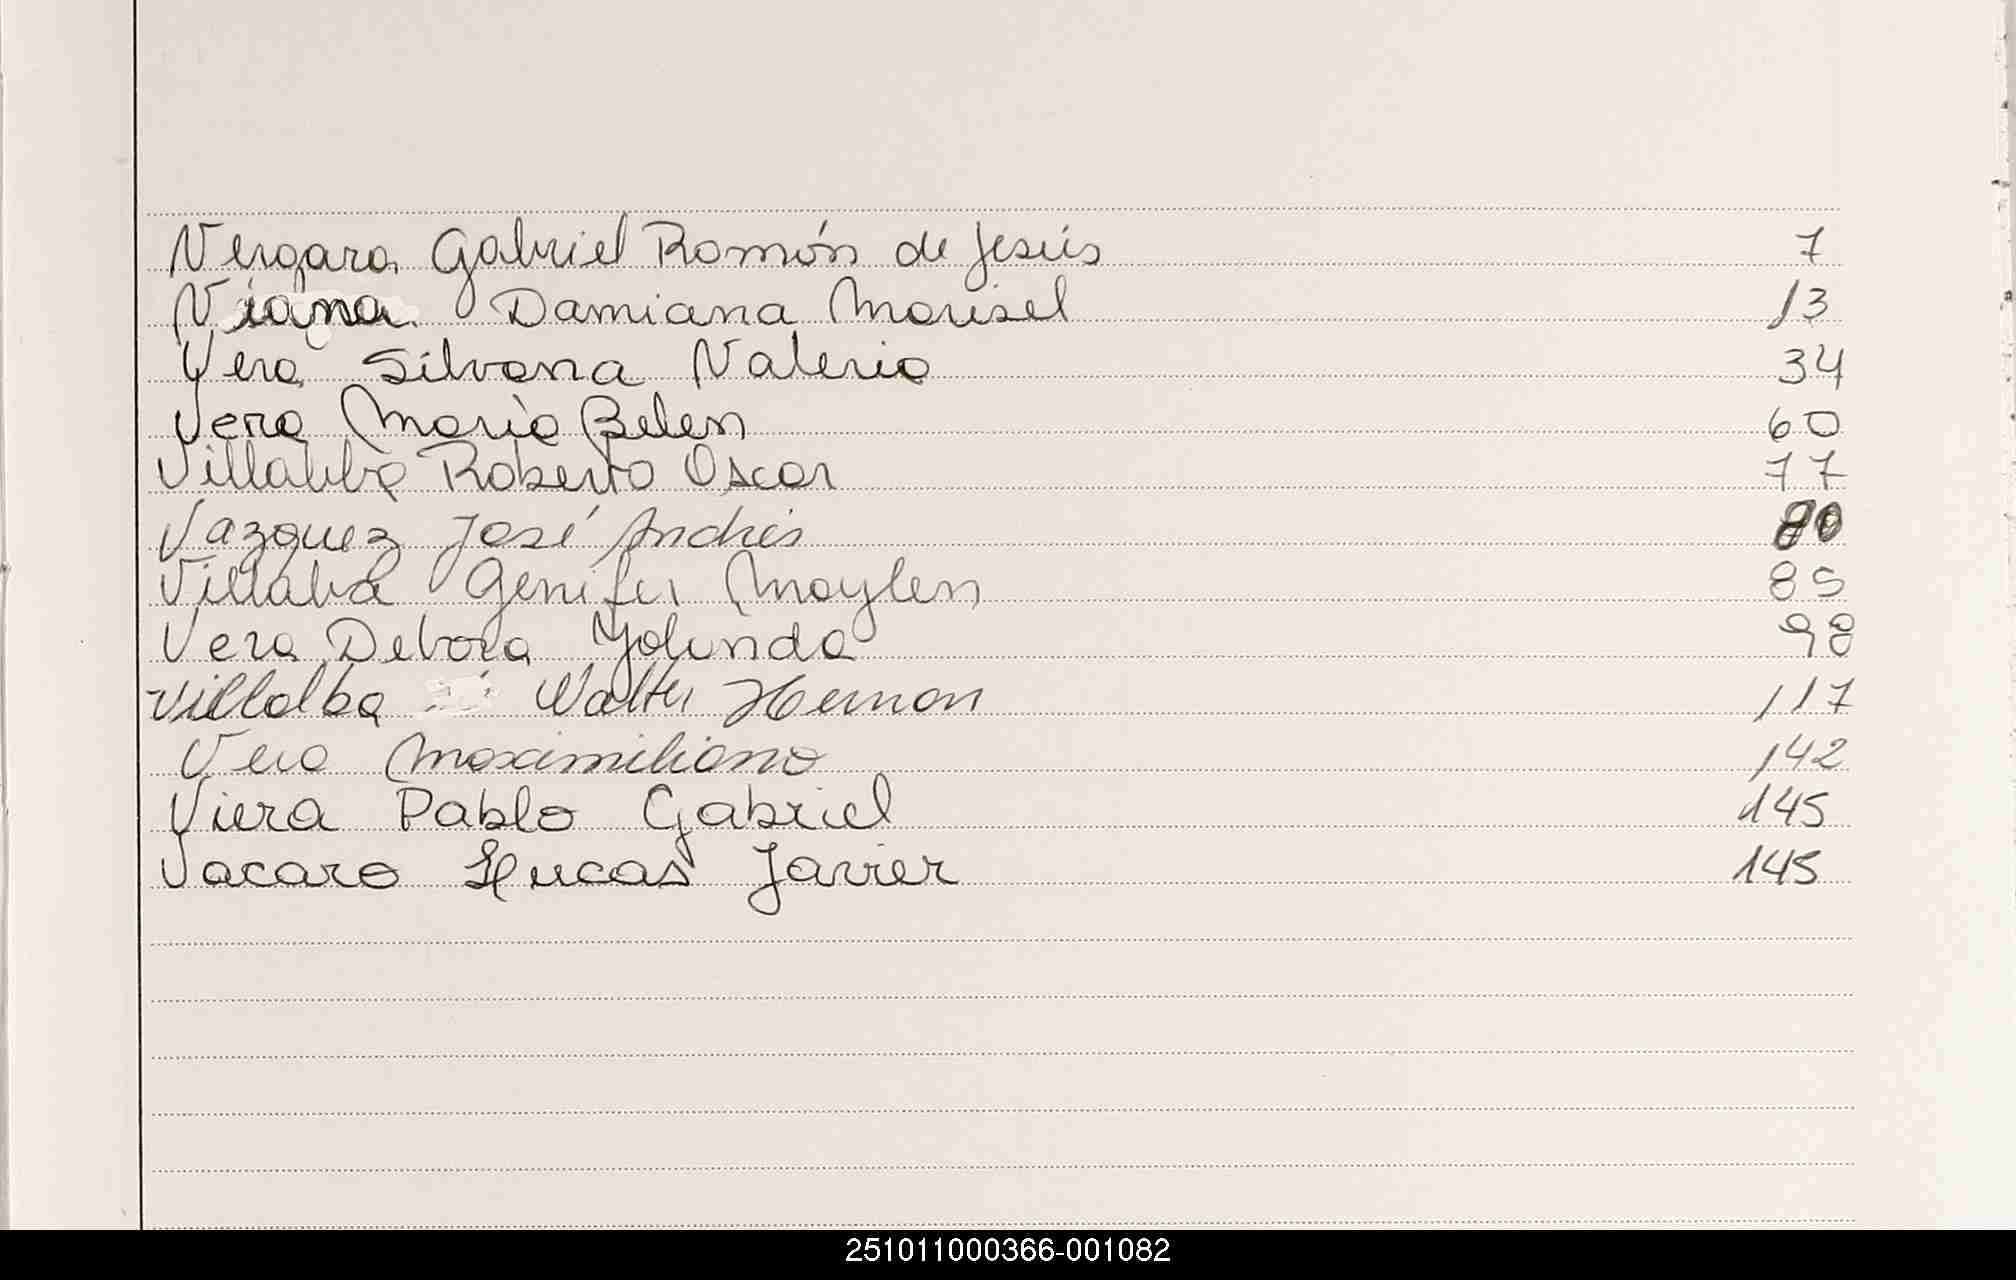 Vergara Gabriel Ramón de Jesús 7
Viana Damiana Marisel 13
Vera Silvana Valeria 34
Vera Maria Belen 60
Villalba Roberto Oscar 77
Vazquez José Andrés 80
Villalba Genifer Maylen 85
Vera Debora Yolinda 98
Villalba Walter Hernan 117
Vera Maximiliano 142
Viera Pablo Gabriel 145
Vacaro Lucas Javier 145
251011000366-001082